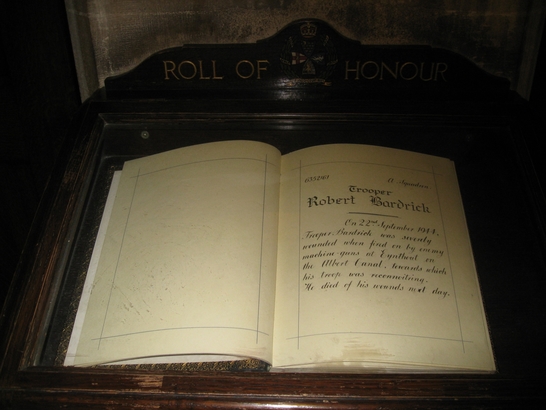 ROLL OF HONOUR
A Squadron
Trooper
Robert Bardrick
On 22nd September 1944,
Trooper Bardrick was severely
wounded when fired on by enemy
machine guns at Eynthout on
the Albert Canal, towards which
his troop was reconnoitring.
He died of his wounds next day.